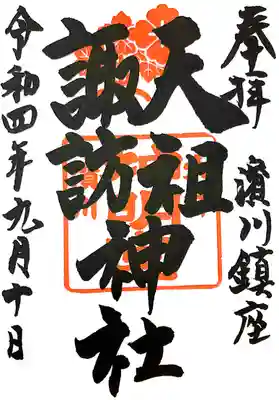 奉拝 濱川鎮座
天祖神社
諏訪
令和四年九月十日